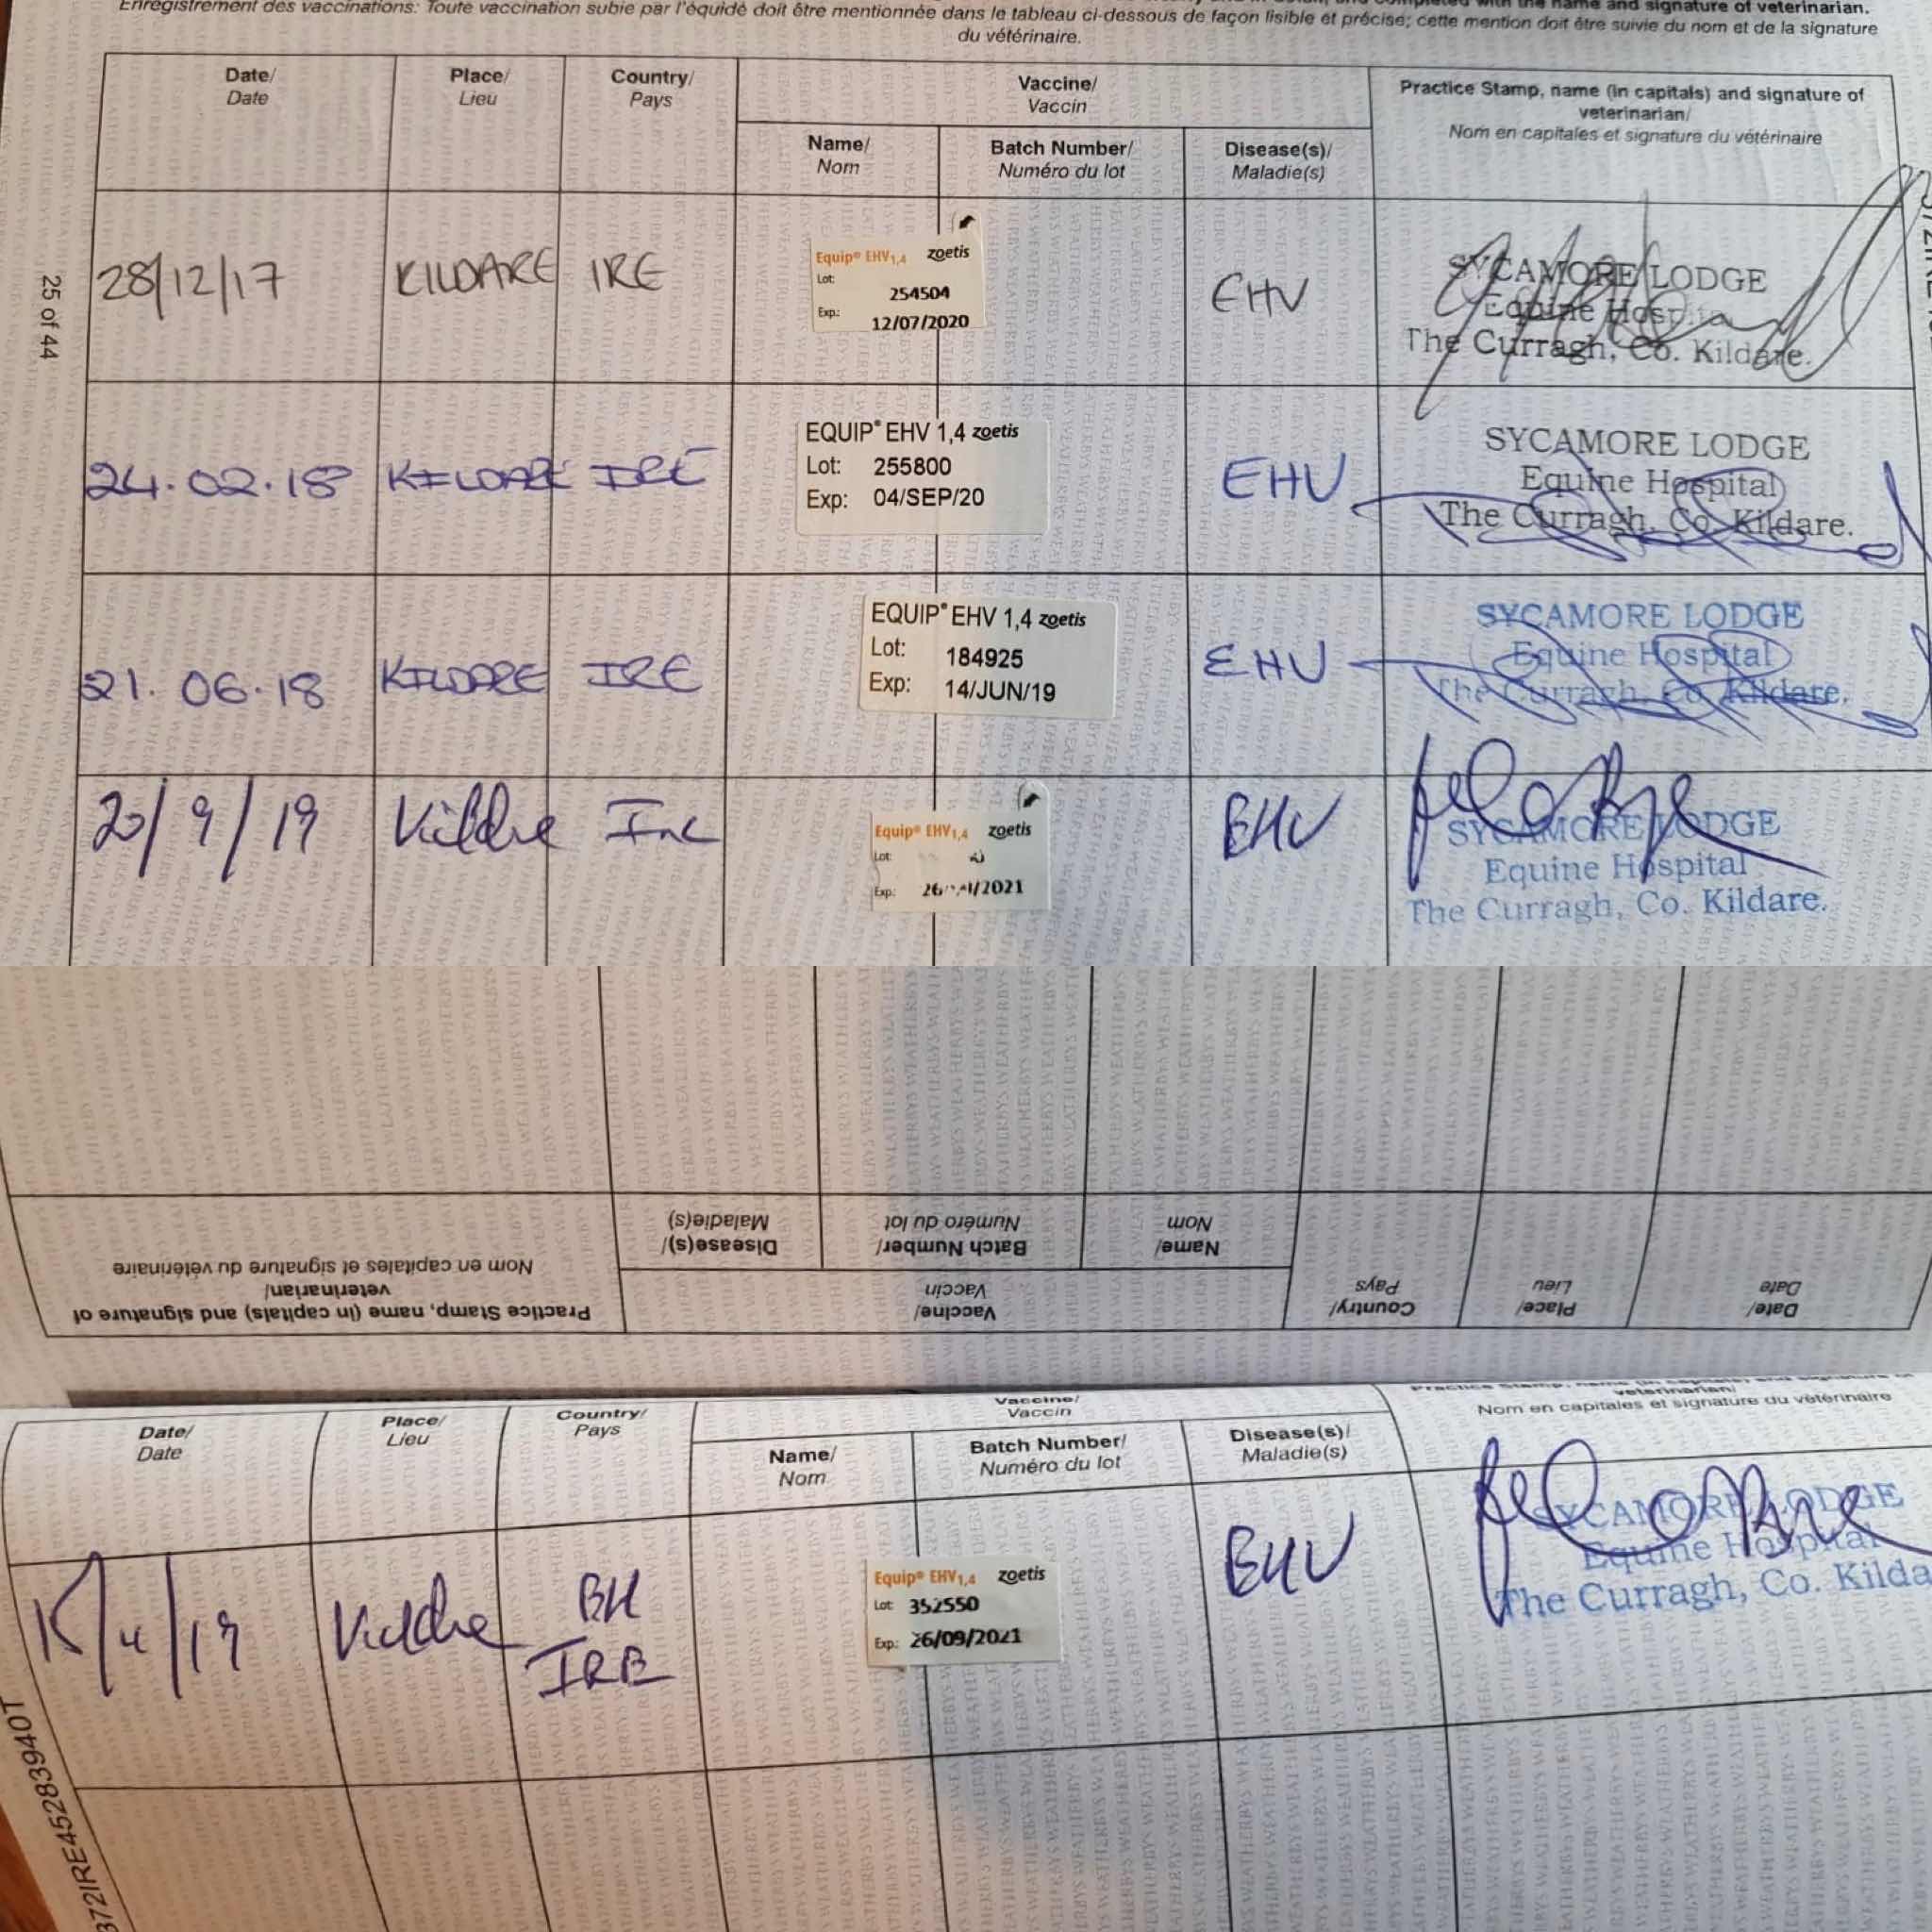 Enregistrement des vaccinations: Toute vaccination subie par l'équidé doit être mentionnée dans le tableau ci-dessous de façon lisible et précise; cette mention doit être suivie du nom et de la signature
du vétérinaire.
Date/ Place/ Country/ Vaccine/ Practice Stamp, name (in capitals) and signature of
Date Lieu Pays Vaccin veterinarian/
Nom en capitales et signature du vétérinaire
Name/ Batch Number/ Disease(s)/
Nom Numéro du lot Maladie(s)
25 of 44
28/12/17 KILDARE IRE EHV
Equip® EHV1,4 zoetis
Lot: 254504
Exp.: 12/07/2020
SYCAMORE LODGE
Equine Hospital
The Curragh, Co. Kildare.
24.02.18 KILDARE IRE EHV
EQUIP® EHV 1,4 zoetis
Lot: 255800
Exp: 04/SEP/20
SYCAMORE LODGE
Equine Hospital
The Curragh, Co. Kildare.
21.06.18 KILDARE IRE EHV
EQUIP® EHV 1,4 zoetis
Lot: 184925
Exp: 14/JUN/19
SYCAMORE LODGE
Equine Hospital
The Curragh, Co. Kildare.
20/9/19 Kildare EHV
Equip® EHV1,4 zoetis
Lot:
Exp.: 2021
SYCAMORE LODGE
Equine Hospital
The Curragh, Co. Kildare.
Date/ Place/ Country/ Vaccine/ Practice Stamp, name (in capitals) and signature of
Date Lieu Pays Vaccin veterinarian/
Nom en capitales et signature du vétérinaire
Name/ Batch Number/ Disease(s)/
Nom Numéro du lot Maladie(s)
Date/ Place/ Country/ Vaccine/ veterinarian/
Date Lieu Pays Vaccin Nom en capitales et signature du vétérinaire
Name/ Batch Number/ Disease(s)/
Nom Numéro du lot Maladie(s)
Kildare IRE EHV
Equip® EHV1,4 zoetis
Lot: 352550
Exp.: 26/09/2021
SYCAMORE LODGE
Equine Hospital
The Curragh, Co. Kilda
372IRE45283940T